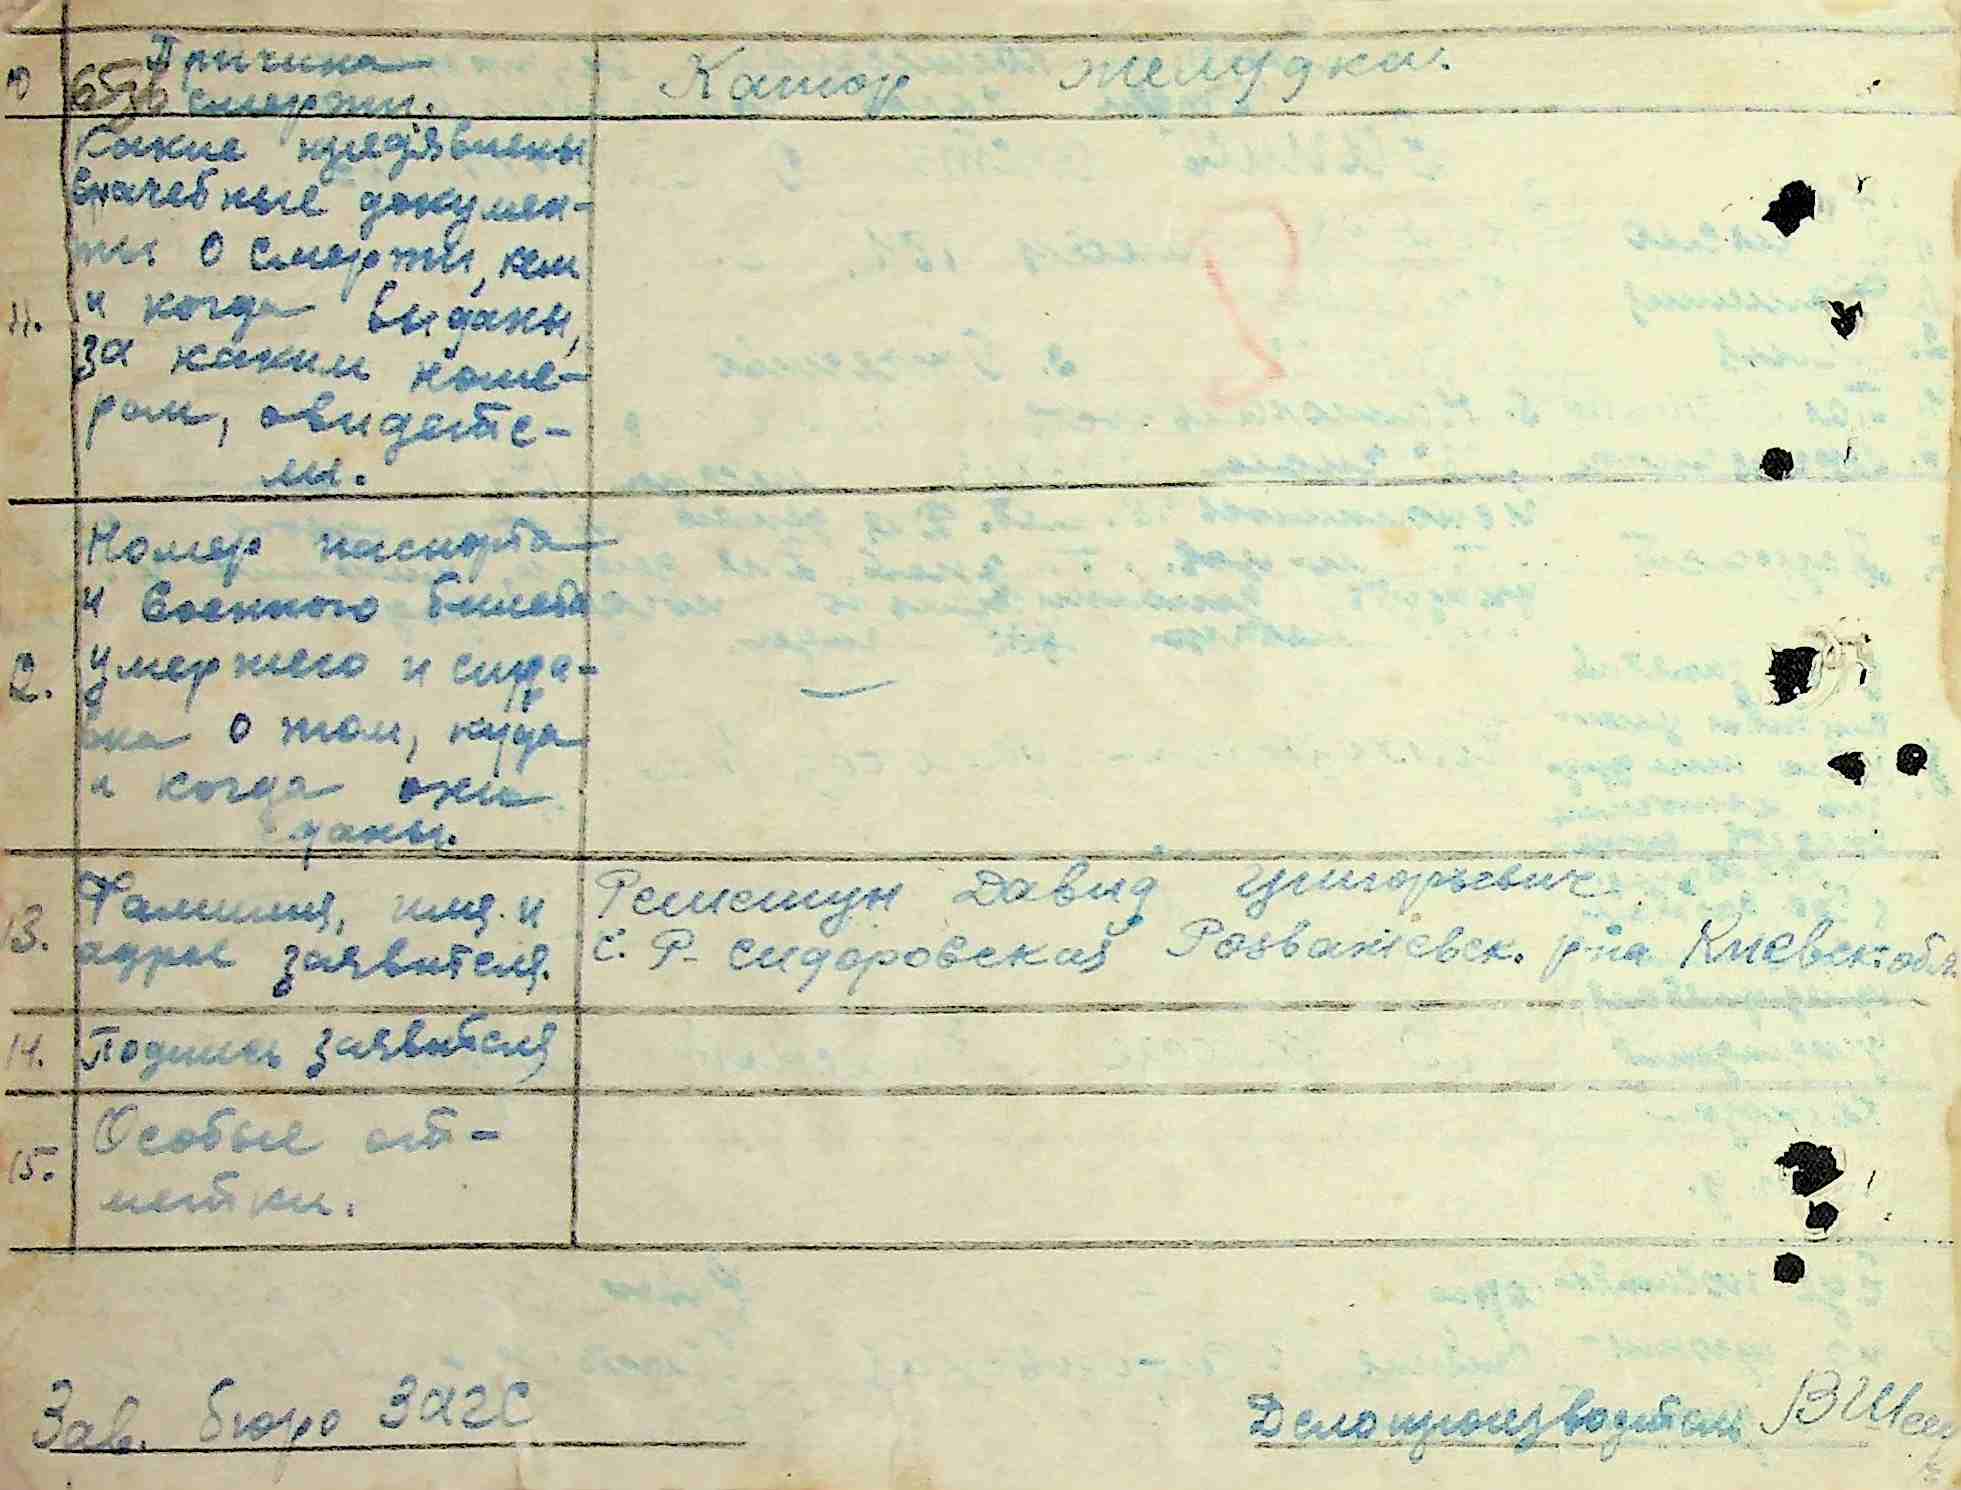 10 Причина
смерти. Катар желудка.
Какие предъявлены
врачебные докумен-
ты о смерти, кем
11. и когда выданы,
за каким номе-
ром, свидете-
ли.
Номер паспорта
и военного билета
умершего и спра-
2. вка о том, куда
и когда они
сданы.
Фамилия, имя и Давид Григорьевич
13. адрес заявителя. с. Р-Сидоровская Розважевск. р-на Киевск. обл.
14. Подпись заявителя
Особые от-
15. метки.
Зав. бюро ЗАГС Делопроизводитель